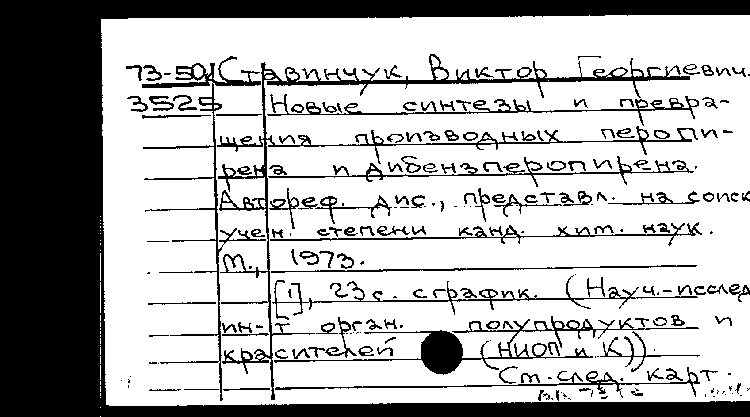 73-50 Ставинчук, Виктор Георгиевич.
3525 Новые синтезы и превра-
щения производных перопи-
рена и дибензперопирена.
Автореф. дис., представл. на соиск.
учен. степени канд. хим. наук.
М., 1973.
[1], 23 с. с график. (Науч.-исслед.
ин-т орган. полупродуктов и
красителей (НИОП и К)).
См. след. карт.